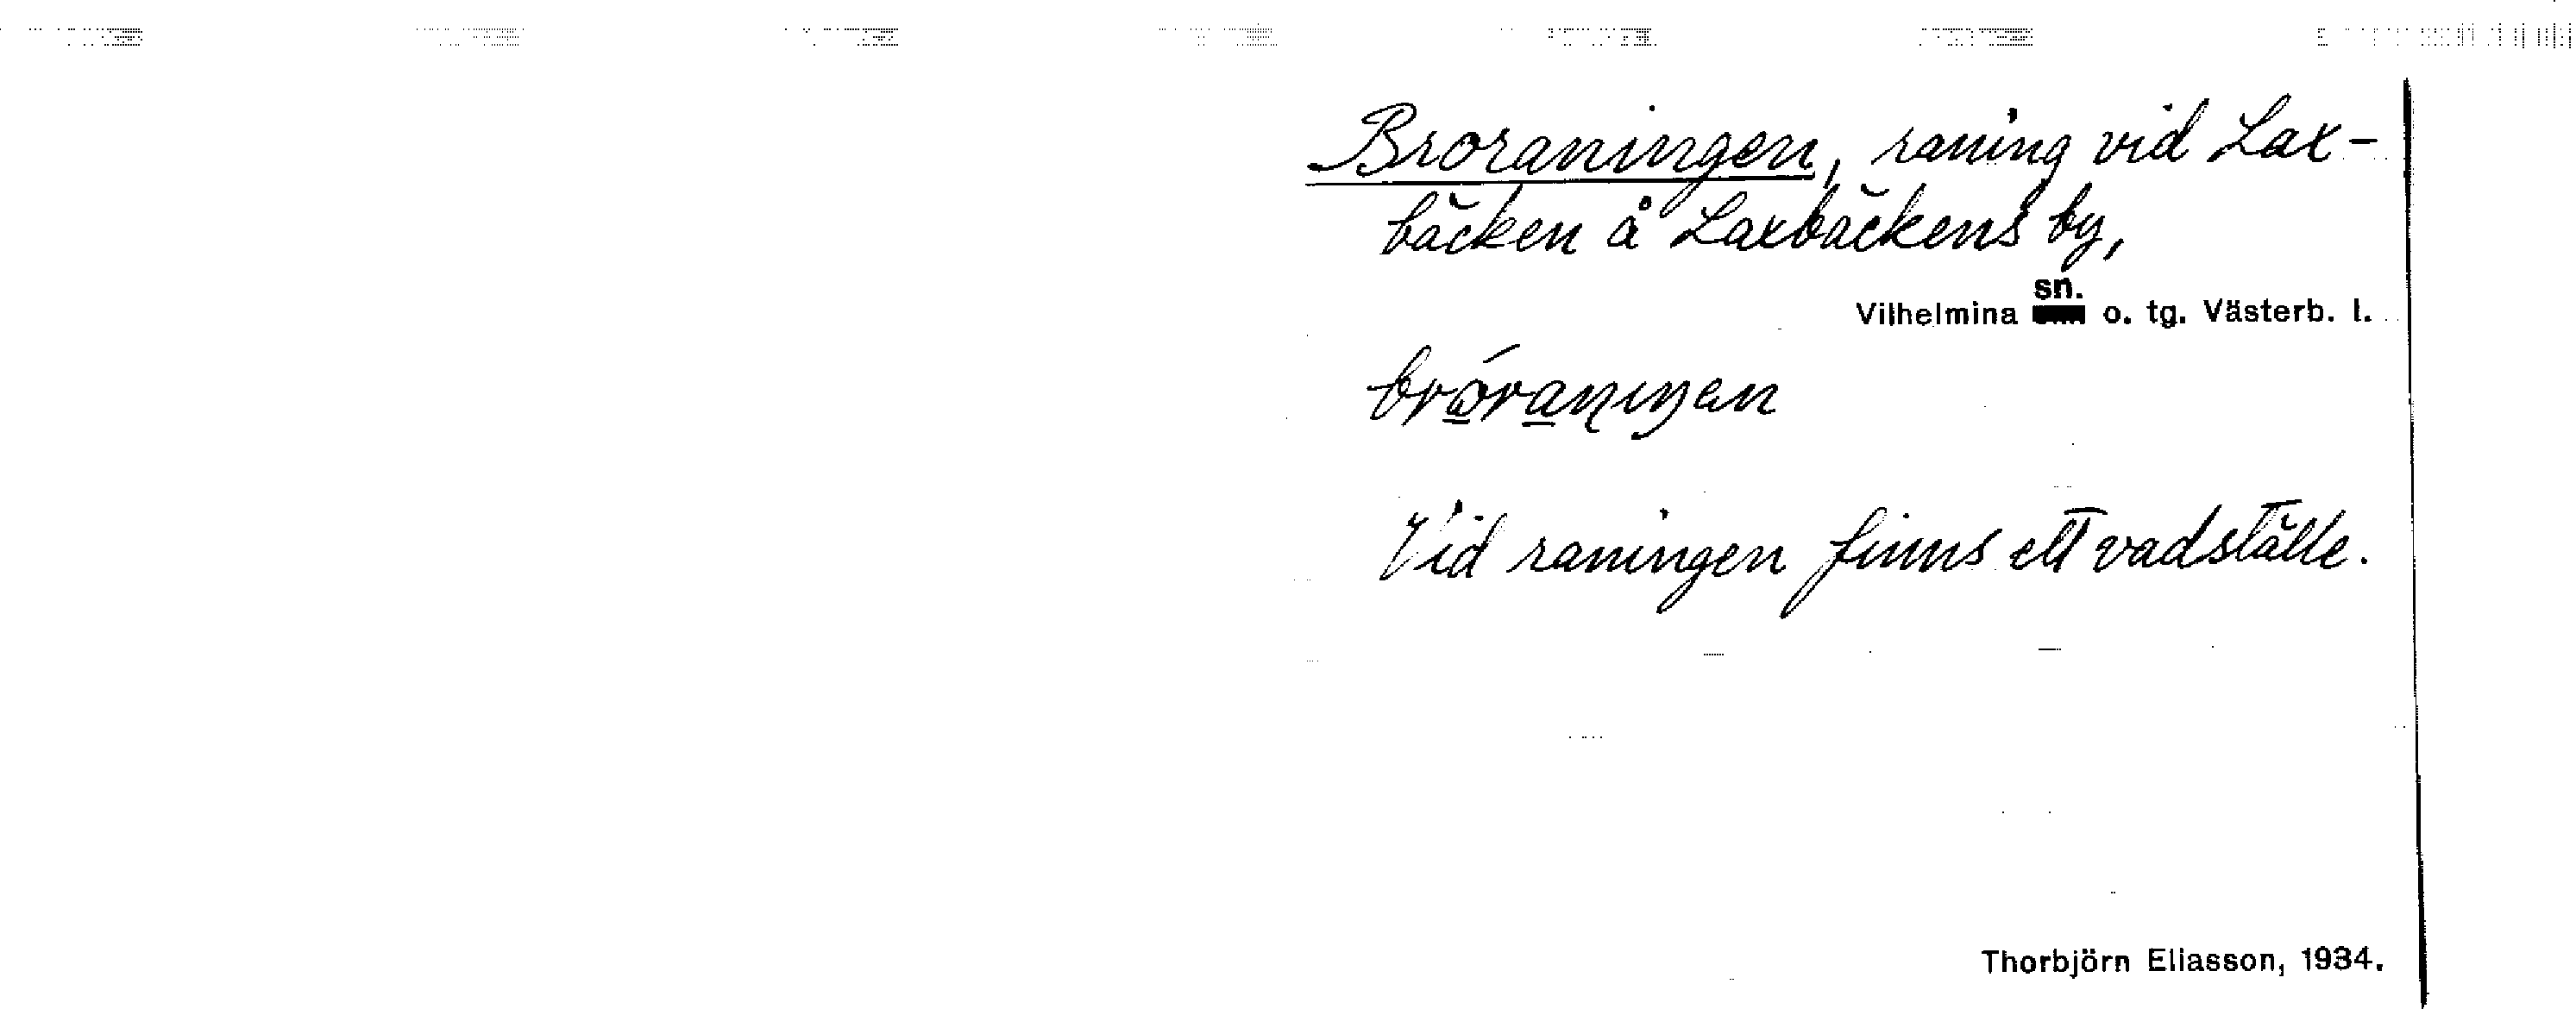 Broraningen, raning vid Lax-
bäcken å Laxbäckens by,
sn.
Vilhelmina o. tg. Västerb. l.
Vid raningen finns ett vadställe.
Thorbjörn Eliasson, 1934.